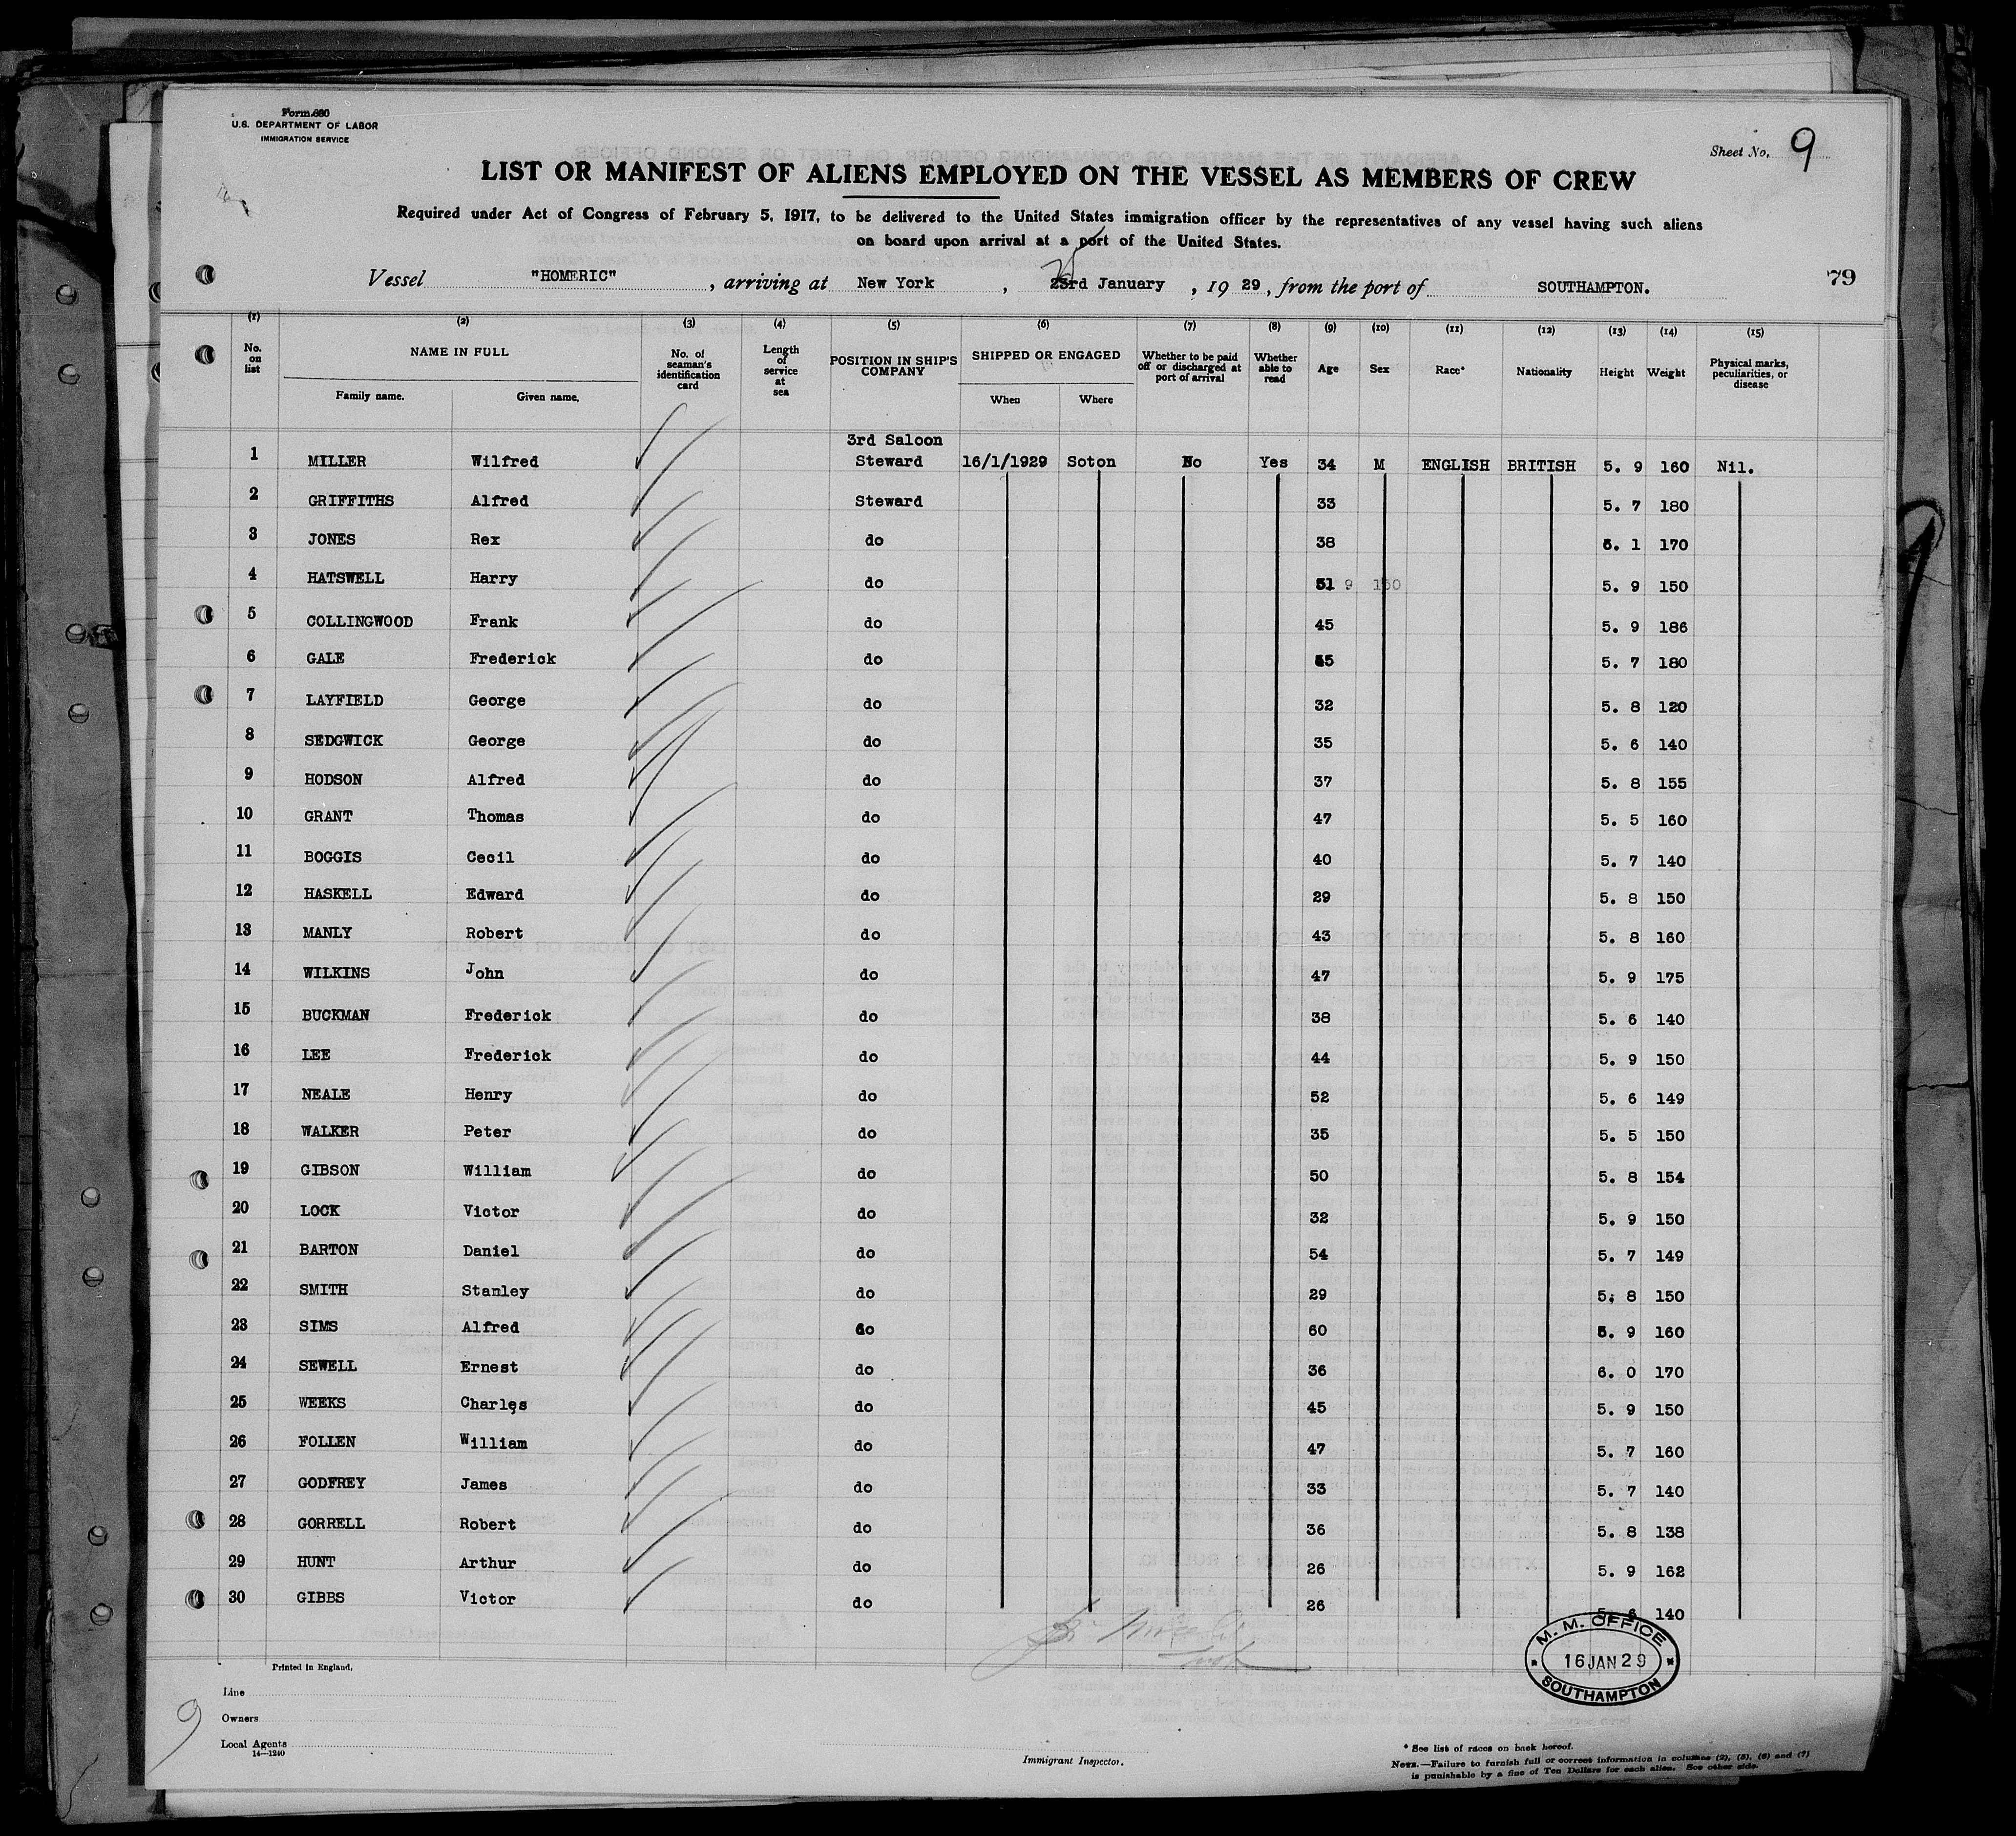 Form 680
U.S. DEPARTMENT OF LABOR
IMMIGRATION SERVICE
Sheet No. 9
LIST OR MANIFEST OF ALIENS EMPLOYED ON THE VESSEL AS MEMBERS OF CREW
Required under Act of Congress of February 5, 1917, to be delivered to the United States immigration officer by the representatives of any vessel having such aliens
on board upon arrival at a port of the United States.
Vessel "HOMERIC", arriving at New York, 23rd January, 1929, from the port of SOUTHAMPTON. 79
(1) (2) (3) (4) (5) (6) (7) (8) (9) (10) (11) (12) (13) (14) (15)
No. on list NAME IN FULL Family name. Given name. No. of seaman's identification card Length of service at sea POSITION IN SHIP'S COMPANY SHIPPED OR ENGAGED When Where Whether to be paid off or discharged at port of arrival Whether able to read Age Sex Race* Nationality Height Weight Physical marks, peculiarities, or disease
3rd Saloon
1 MILLER Wilfred Steward 16/1/1929 Soton No Yes 34 M ENGLISH BRITISH 5. 9 160 Nil.
2 GRIFFITHS Alfred Steward 33 5. 7 180
3 JONES Rex do 38 6. 1 170
4 HATSWELL Harry do 51 9 150 5. 9 150
5 COLLINGWOOD Frank do 45 5. 9 186
6 GALE Frederick do 5. 7 180
7 LAYFIELD George do 32 5. 8 120
8 SEDGWICK George do 35 5. 6 140
9 HODSON Alfred do 37 5. 8 155
10 GRANT Thomas do 47 5. 5 160
11 BOGGIS Cecil do 40 5. 7 140
12 HASKELL Edward do 29 5. 8 150
13 MANLY Robert do 43 5. 8 160
14 WILKINS John do 47 5. 9 175
15 BUCKMAN Frederick do 38 5. 6 140
16 LEE Frederick do 44 5. 9 150
17 NEALE Henry do 52 5. 6 149
18 WALKER Peter do 35 5. 5 150
19 GIBSON William do 50 5. 8 154
20 LOCK Victor do 32 5. 9 150
21 BARTON Daniel do 54 5. 7 149
22 SMITH Stanley do 29 5; 8 150
23 SIMS Alfred do 60 5. 9 160
24 SEWELL Ernest do 36 6. 0 170
25 WEEKS Charles do 45 5. 9 150
26 FOLLEN William do 47 5. 7 160
27 GODFREY James do 33 5. 7 140
28 GORRELL Robert do 36 5. 8 138
29 HUNT Arthur do 26 5. 9 162
30 GIBBS Victor do 26 5. 6 140
M. M. OFFICE
16 JAN 29
SOUTHAMPTON
Printed in England.
Line
Owners
9
Local Agents
14—1240
Immigrant Inspector.
* See list of races on back hereof.
NOTE.—Failure to furnish full or correct information in columns (2), (5), (6) and (7)
is punishable by a fine of Ten Dollars for each alien. See other side.